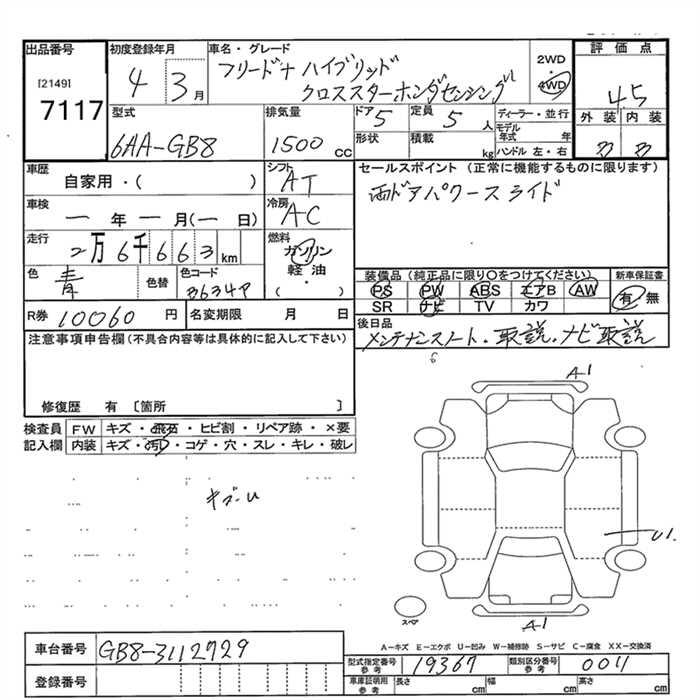 出品番号
[2149]
7117
初度登録年月
4 3 月
車名・グレード
フリード+ ハイブリッド
クロススターホンダセンシング
2WD
4WD
評価点
4.5
外装 内装
B B
型式
6AA-GB8
排気量
1500 cc
ドア
5
定員
5 人
形状
積載
kg
ディーラー・並行
モデル年式 年
ハンドル 左・右
車歴
自家用・( )
シフト
AT
セールスポイント (正常に機能するものに限ります)
両ドアパワースライド
車検
一 年 一 月(一 日)
冷房
AC
走行
2万6千663 km
燃料
ガソリン
軽油
( ・ )
色
青
色替
色コード
B634P
装備品(純正品に限り○をつけてください)
PS PW ABS エアB AW
SR ナビ TV カワ
新車保証書
有 無
R券 10060 円
名変期限 月 日
後日品
メンテナンスノート・取説・ナビ取説
注意事項申告欄(不具合内容等は具体的に記入して下さい)
修復歴 有 〔箇所 〕
検査員
記入欄
FW キズ・飛石・ヒビ割・リペア跡・×要
内装 キズ・汚れ・コゲ・穴・スレ・キレ・破レ
A1
U1
A1
スペア
A−キズ E−エクボ U−凹み W−補修跡 S−サビ C−腐食 XX−交換済
車台番号 GB8-3112729
登録番号
型式指定番号
参考
19367
類別区分番号
参考
0011
車庫証明用
参考
長さ cm
幅 cm
高さ cm